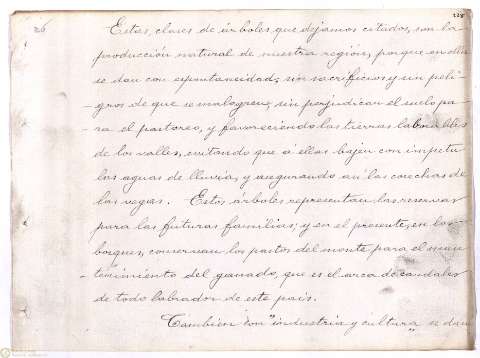 26
228
Estas, clases de árboles, que dejamos citados, son la
producción natural de nuestra región, porque en ella
se dan con espontaneidad; sin sacrificios y sin peli-
-gros de que se malogren; sin perjudicar el suelo pa-
-ra el pastoreo, y favoreciendo las tierras laborables
de los valles, evitando que á ellas bajen con impetu
las aguas de lluvia, y asegurando así las cosechas de
las vegas. Estos árboles representan las reservas
para las futuras familias; y en el presente, en los
bosques, conservan los pastos del monte para el man-
-tenimiento del ganado, que es el arca de caudales
de todo labrador de este país.
También con "industria y cultura" se dan